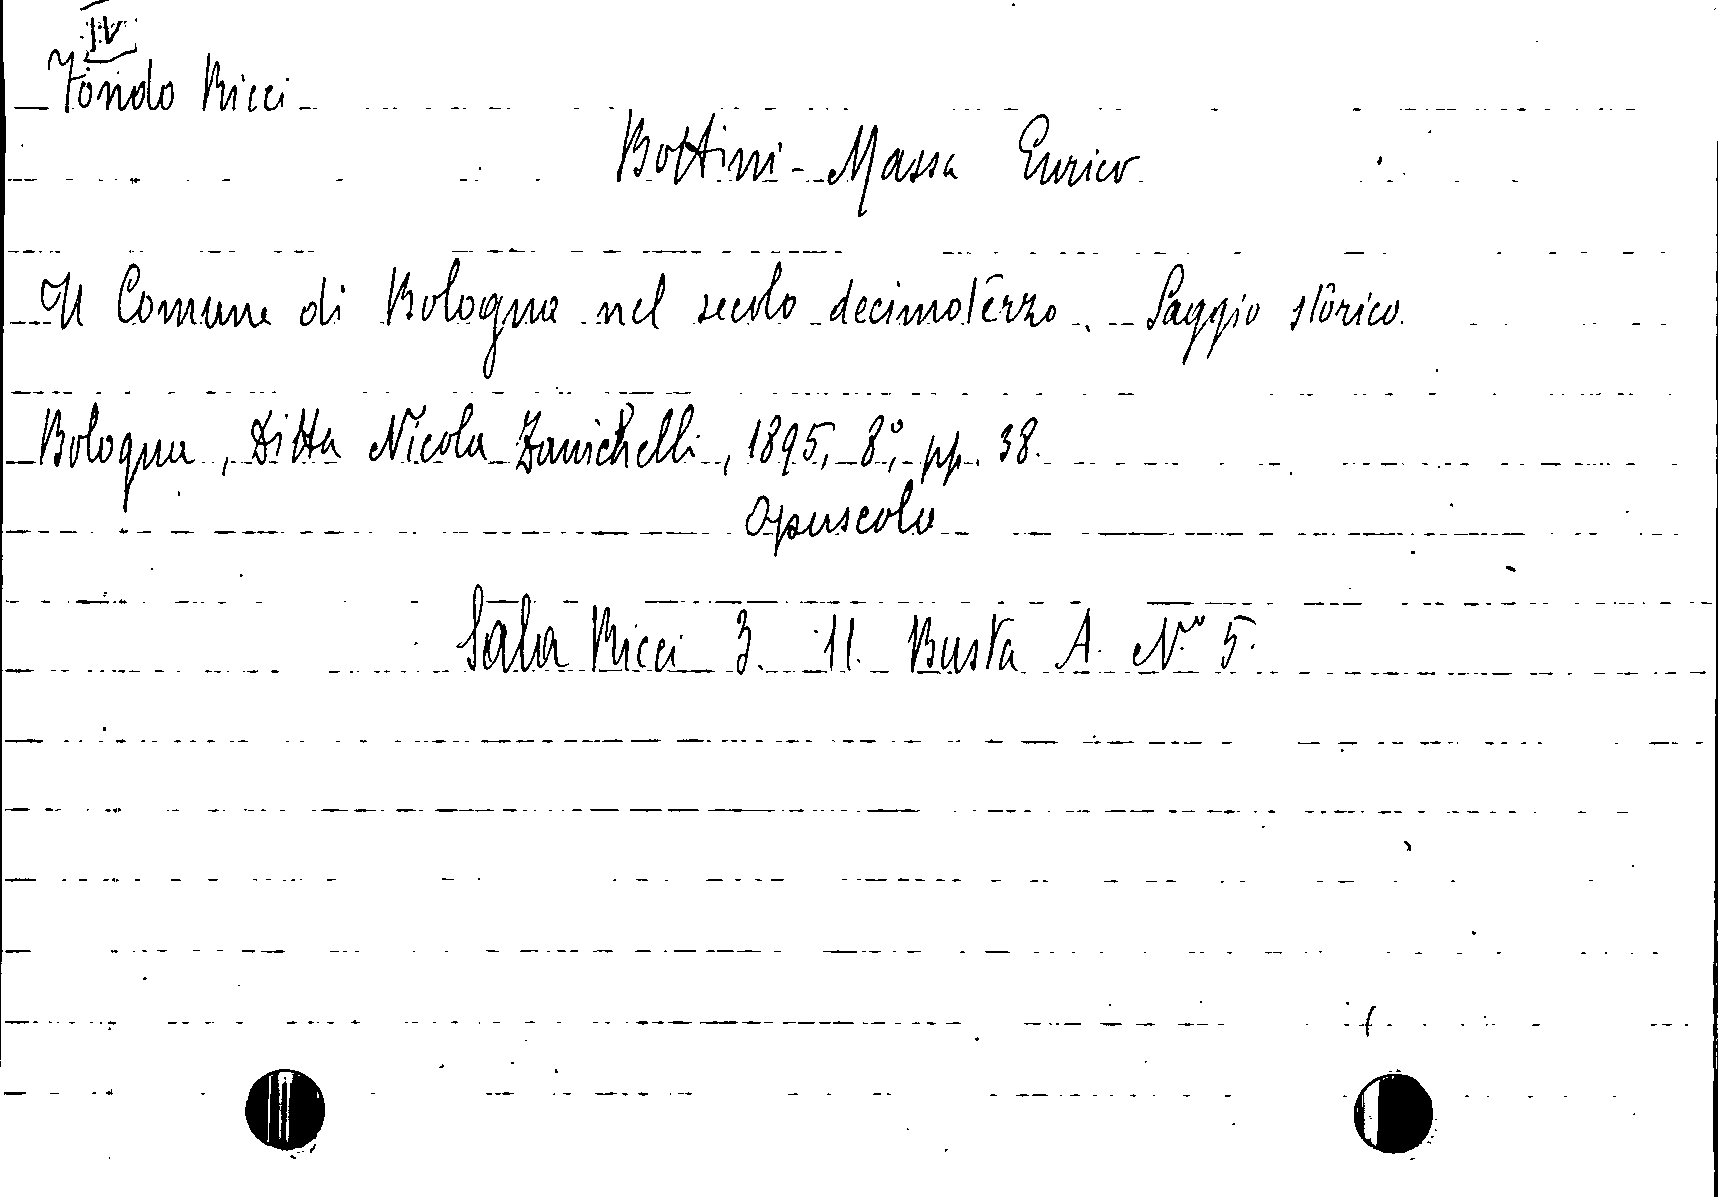 IV
Fondo Ricci
Bottini-Massa Enrico
Il Comune di Bologna nel secolo decimoterzo. Saggio storico.
Bologna, Ditta Nicola Zanichelli, 1895, 8°, pp. 38.
Opuscolo
Sala Ricci 3. 11. Busta A. N.° 5.